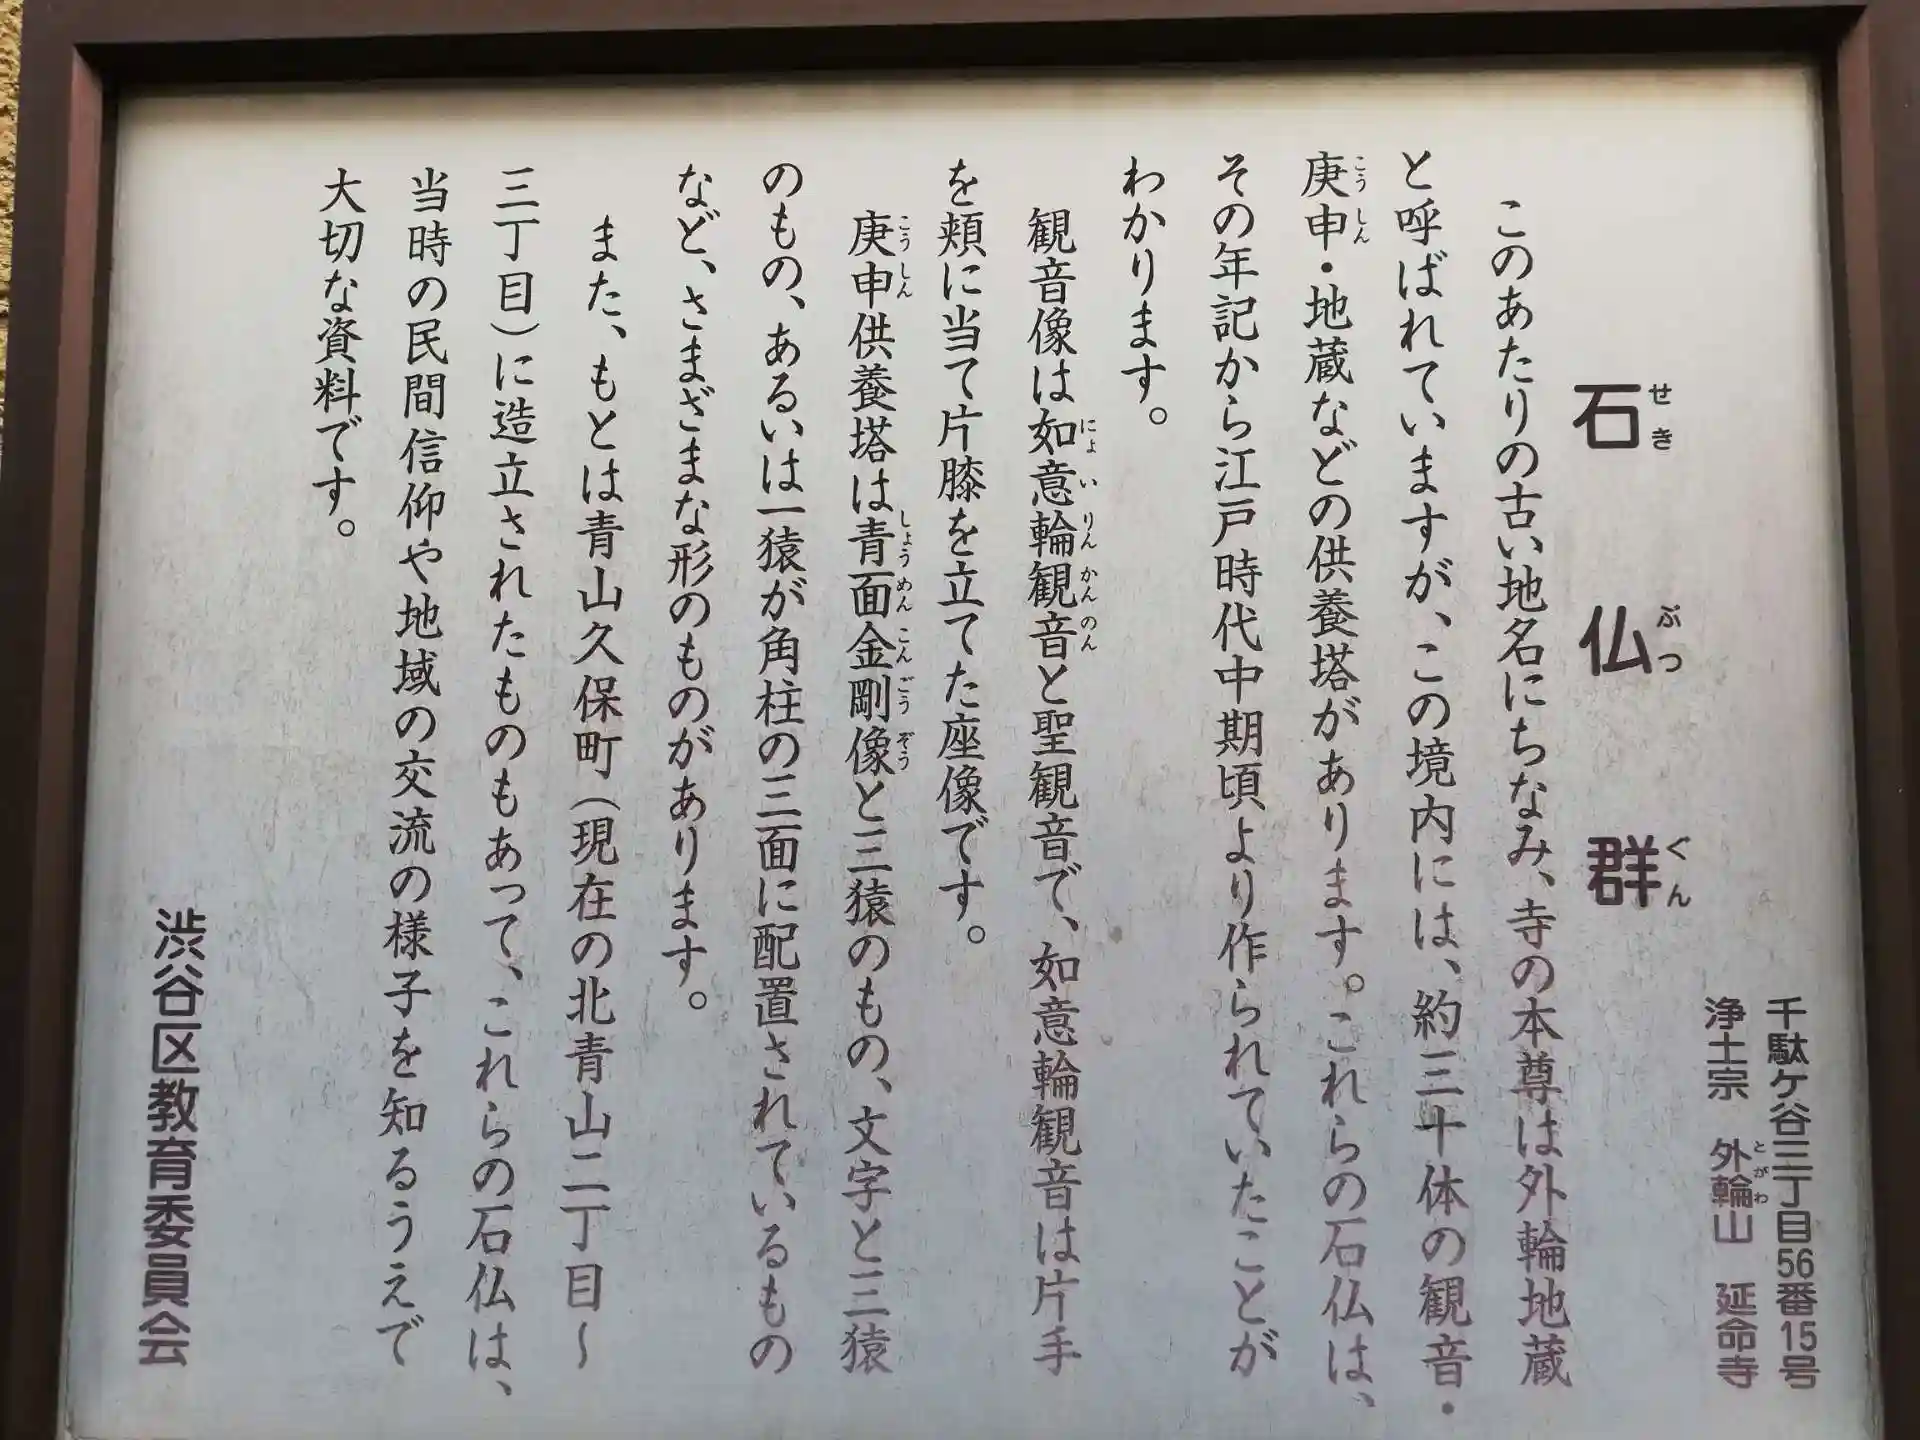 石仏群
千駄ケ谷三丁目56番15号
浄土宗　外輪山　延命寺
このあたりの古い地名にちなみ、寺の本尊は外輪地蔵
と呼ばれていますが、この境内には、約三十体の観音・
庚申・地蔵などの供養塔があります。これらの石仏は、
その年記から江戸時代中期頃より作られていたことが
わかります。
観音像は如意輪観音と聖観音で、如意輪観音は片手
を頬に当て片膝を立てた座像です。
庚申供養塔は青面金剛像と三猿のもの、文字と三猿
のもの、あるいは一猿が角柱の三面に配置されているもの
など、さまざまな形のものがあります。
また、もとは青山久保町（現在の北青山二丁目～
三丁目）に造立されたものもあって、これらの石仏は、
当時の民間信仰や地域の交流の様子を知るうえで
大切な資料です。
渋谷区教育委員会